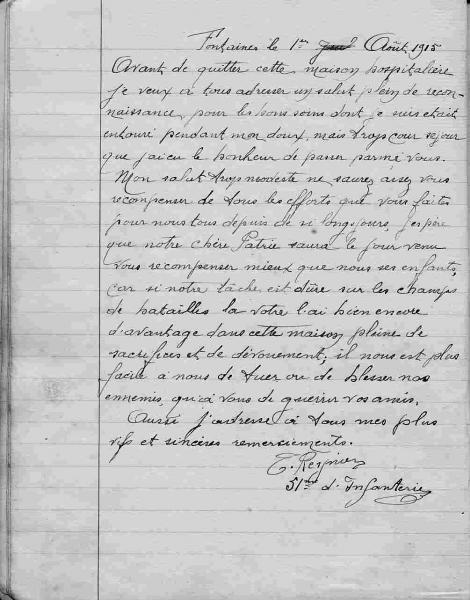 Fontaines le 1er Août 1915
Avant de quitter cette maison hospitalière
je veux à tous adresser un salut plein de recon-
naissance, pour les bons soins dont je suis était
entouré pendant mon doux, mais trops cour séjour
que j'ai eu le bonheur de passer parmé vous.
Mon salut trops modeste ne saurez asez vous
recompenser de tous les efforts que vous faites
pour nous tous depuis de si longs jours, j'espère
que notre chère Patrie saura le jour venu
vous recompenser mieux que nous ses enfants,
car si notre tâche est dûre sur les champs
de batailles la votre l'ai bien encore
d'avantage dans cette maison pleine de
sacrifices et de dévouement; il nous est plus
facile à nous de tuer ou de blesser nos
ennemis, qu'à vous de guerrir vos amis.
Aussi j'adresse à tous mes plus
vifs et sincères remerciements.
51me d'Infanterie